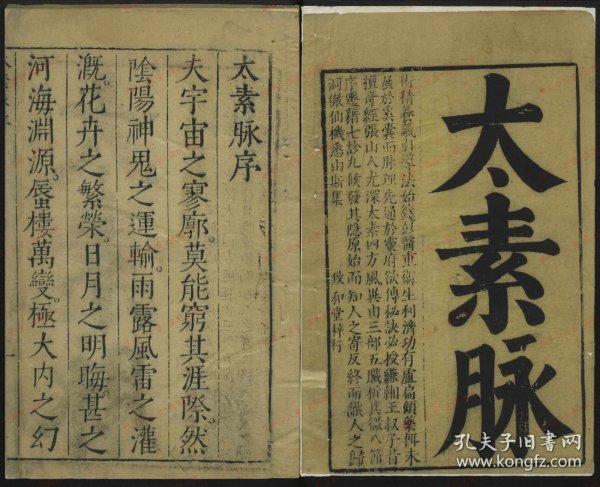 太素脉
術精春氣引導法始錢彭醫重衛生利濟功有盧扁鎖藥餌未
展於奚囊而脉理先通於靈府欲傳秘訣必授縹緗王叔子昔
擅奇經張山人尤深太素四方風異由三部五臟析其微八節
序遷藉七診九候發其隱原始而知人之寄反終而識人之歸
洞徹仙機悉由斯集
致和堂梓行
太素脉序
夫宇宙之寥廓。莫能窮其涯際。然
陰陽神鬼之運輸。雨露風雷之灌
溉。花卉之繁榮。日月之明晦。甚之
河海淵源。蜃樓萬變。極大内之幻
孔夫子旧书网
www.kongfz.com